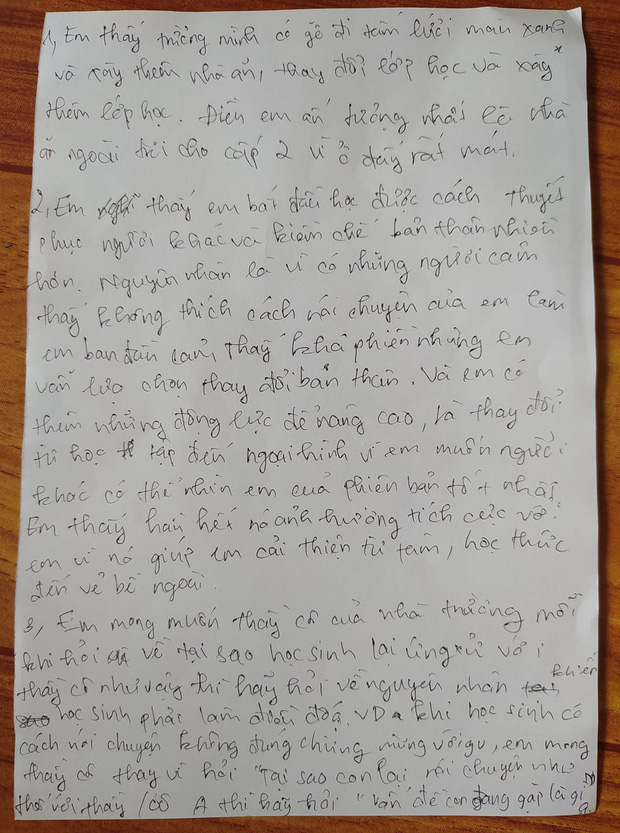 1, Em thấy trường mình có gỡ đi tấm lưới màu xanh
và xây thêm nhà ăn, thay đổi lớp học và xây
thêm lớp học. Điều em ấn tượng nhất là nhà
ăn ngoài trời cho cấp 2 vì ở đấy rất mát.
2, Em thấy em bắt đầu học được cách thuyết
phục người khác và kiềm chế bản thân nhiều
hơn. Nguyên nhân là vì có những người cảm
thấy không thích cách nói chuyện của em làm
em ban đầu cảm thấy khá phiền nhưng em
vẫn lựa chọn thay đổi bản thân. Và em có
thêm những động lực để nâng cao, là thay đổi
từ học tập đến ngoại hình vì em muốn người
khác có thể nhìn em của phiên bản tốt nhất
Em thấy hầu hết nó ảnh hưởng tích cực với
em vì nó giúp em cải thiện từ tâm, học thức
đến vẻ bề ngoài.
3, Em mong muốn thầy cô của nhà trường mỗi
khi hỏi về tại sao học sinh lại ứng xử với
thầy cô như vậy thì hãy hỏi về nguyên nhân khiến
học sinh phải làm điều đó. VD khi học sinh có
cách nói chuyện không đúng chừng mực với gv, em mong
thầy cô thay vì hỏi "Tại sao con lại nói chuyện như
thế với thầy / cô A thì hãy hỏi "Vấn đề con đang gặp là gì